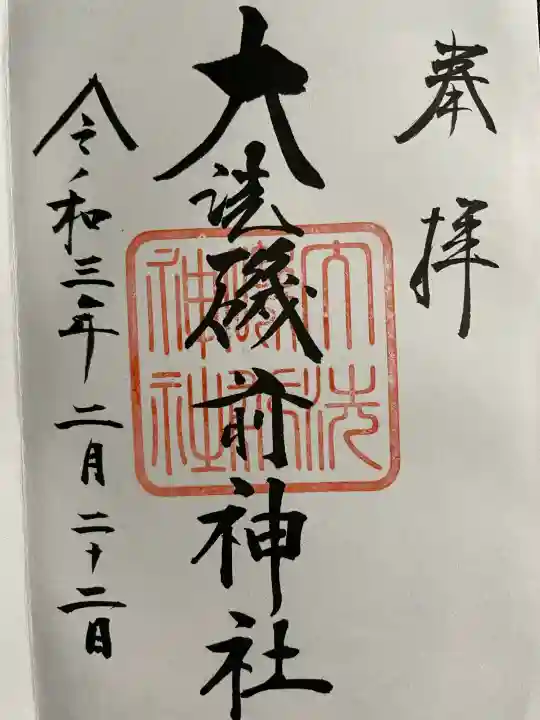 奉拝
大洗磯前神社
大洗磯前神社
令和三年二月二十二日